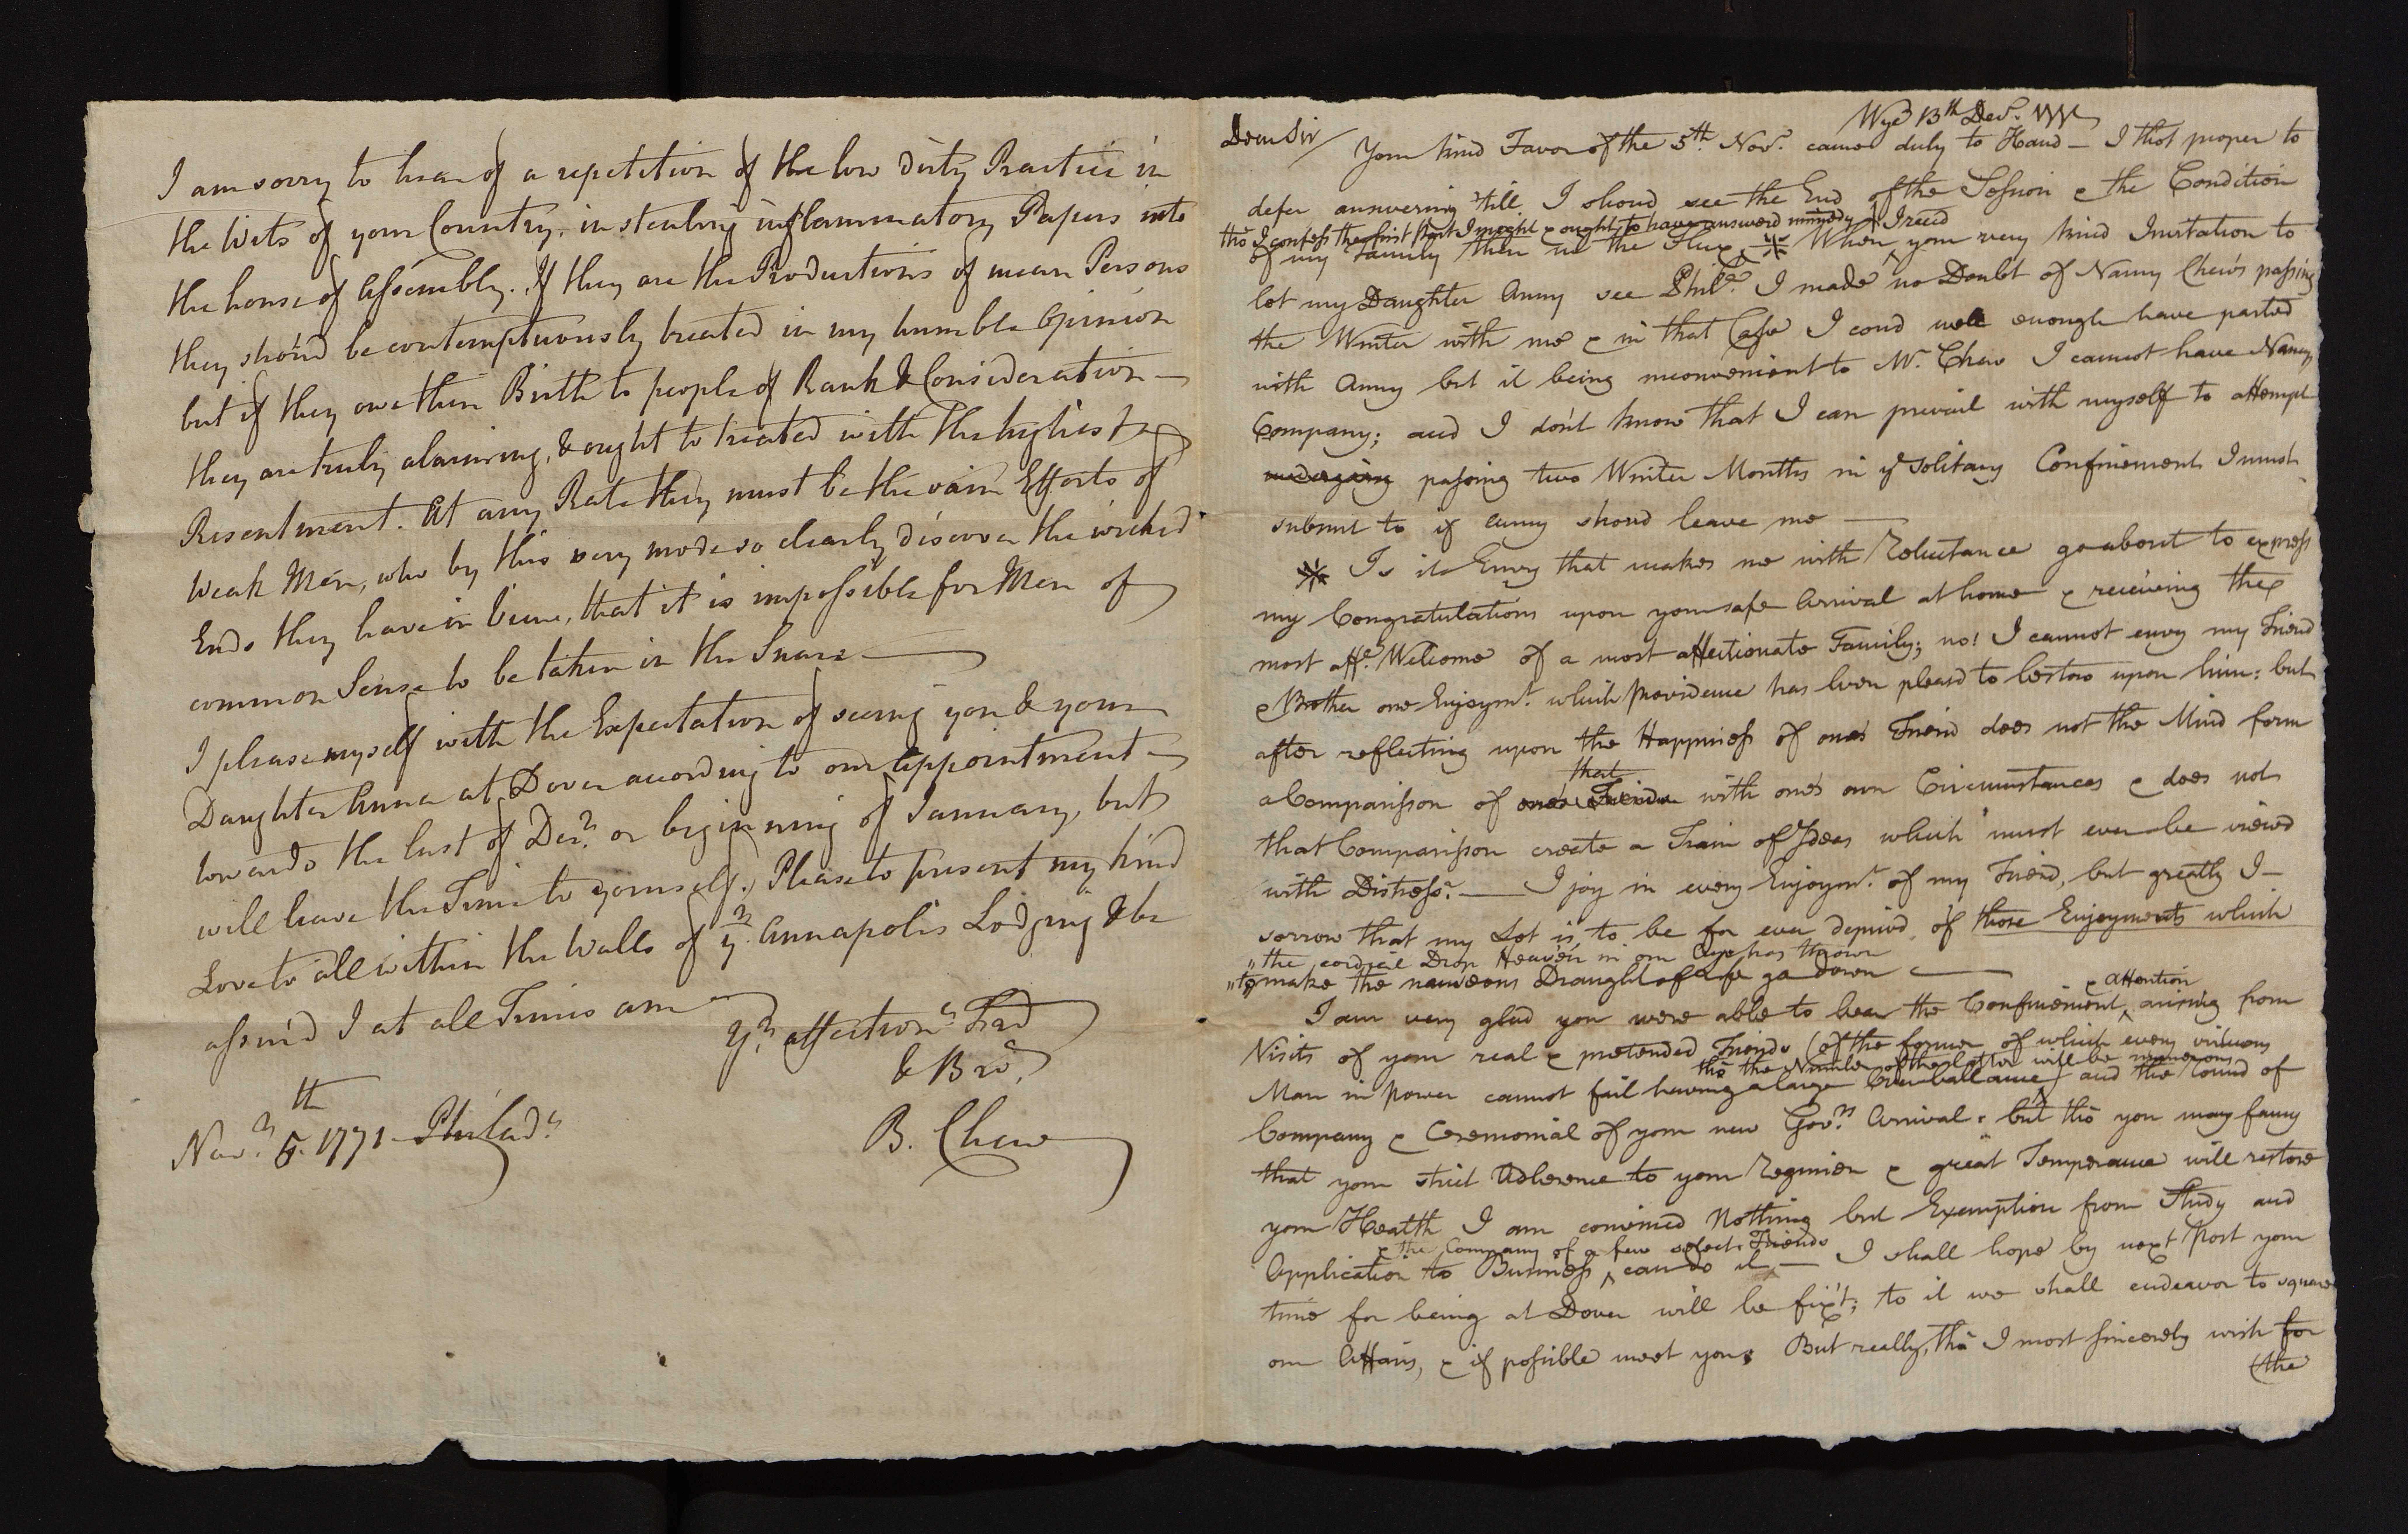 I am sorry to hear of a repetition of the low dirty Practice in
the Wits of your Country, in stealing inflammatory Papers into
the house of Assembly. If they are the Productions of mean Persons
they shou'd be contemptuously treated in my humble Opinion
but if they owe their Birth to people of Rank & Consideration —
they are truly alarming, & ought to treated with the highest
Resentment. At any Rate they must be the vain Efforts of
Weak Men, who by this very mode so clearly discover the wicked
Ends they have in View, that it is impossible for Men of
common Sense to be taken in the Snare —
I please myself with the Expectation of seeing you & your
Daughter Anna at Dover according to our appointment —
towards the last of Decr. or beginning of January, but
will leave the Time to yourself. Please to present my kind
Love to all within the Walls of yr. Annapolis Lodging & be
assur'd I at all Times am
Yr. affectione. Frd
& Bror.
B. Chew
Novr. 5th. 1771 Philada.
Wye 13th Decr. 1771
Dear Sir/
Your kind Favor of the 5th. Novr. came duly to Hand — I thot proper to
defer answering 'till I shoud see the End of the Session & the Condition
tho I confess the first part I might & ought to have answerd immedy
of my Family then in the Flux ※ When I recd your very kind Invitation to
let my Daughter Anny see Phila. I made no Doubt of Nanny Chew's passing
the Winter with me & in that Case I coud well enough have parted
with Anny but it being inconvenient to Mr. Chew I cannot have Nanny's
Company; and I don't know that I can prevail with myself to attempt
undergoing passing two Winter Months in ye solitary Confinement I must
submit to if Anny shoud leave me —
※ Is it Envy that makes me with Reluctance go about to express
my Congratulations upon your safe Arrival at home & receiving the
most affe. Welcome of a most affectionate Family; no! I cannot envy my Friend
& Brother one Enjoymt. which Providence has been pleasd to bestow upon him: but
after reflecting upon the Happiness of one's Friend does not the Mind form
that
a Comparisson of one's Friends with one's own Circumstances & does not
that Comparisson create a Train of Ideas which must ever be viewd
with Distress? — I joy in every Enjoymt. of my Friend, but greatly I
sorrow that my Lot is to be for ever deprivd of those Enjoyments which
"the cordial Drop Heaven in our Cup has thrown
"to make the nauseous Draught of Life go down —
& attention
I am very glad you were able to bear the Confinement arising from
Visits of your real & pretended Friends (of the former of which every virtuous
tho the Number of the latter will be numerous
Man in Power cannot fail having a large Overballance) and the round of
Company & Ceremonial of your new Govrs. Arrival: but tho you may fancy
that your strict Adherence to your Regimen & great Temperance will restore
your Health I am convinced Nothing but Exemption from Study and
& the Company of a few select Friends
Application to Business can do it, — I shall hope by next Post your
time for being at Dover will be fixt; to it we shall endeavor to square
our Affairs, & if possible meet you. But really, tho I most sincerely wish for
(the